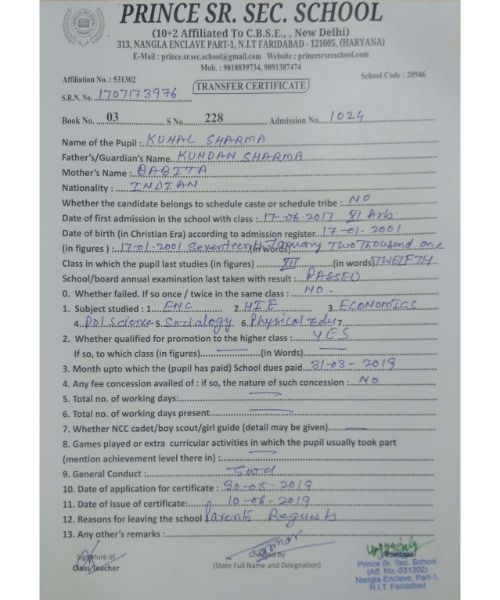 PRINCE SR. SEC. SCHOOL
(10+2 Affiliated To C.B.S.E., , New Delhi)
313, NANGLA ENCLAVE PART-1, N.I.T FARIDABAD - 121005, (HARYANA)
E-Mail : prince.sr.sec.school@gmail.com Website : princesrsecschool.com
Mob. : 9818839734, 9891387474
Affiliation No. : 531302 School Code : 20946
TRANSFER CERTIFICATE
S.R.N. No. 1707173976
Book No. 03 S No. 228 Admission No. 1024
Name of the Pupil : KUNAL SHARMA
Father's/Guardian's Name. KUNDAN SHARMA
Mother's Name : BABITA
Nationality : INDIAN
Whether the candidate belongs to schedule caste or schedule tribe : NO
Date of first admission in the school with class : 17-06-2017 XI Arts
Date of birth (in Christian Era) according to admission register 17-01-2001
(in figures ) : 17-01-2001 (in words) Seventeenth January Two Thousand one
Class in which the pupil last studies (in figures) XII (in words) TWELFTH
School/board annual examination last taken with result : PASSED
0. Whether failed. If so once / twice in the same class : NO
1. Subject studied : 1. ENC 2. HIE 3. ECONOMICS
4. Pol Science 5. Sociology 6. Physical Edu 7.
2. Whether qualified for promotion to the higher class : YES
If so, to which class (in figures) (in Words)
3. Month upto which the (pupil has paid) School dues paid 31-03-2019
4. Any fee concession availed of : if so, the nature of such concession : NO
5. Total no. of working days:
6. Total no. of working days present
7. Whether NCC cadet/boy scout/girl guide (detail may be given)
8. Games played or extra curricular activities in which the pupil usually took part
(mention achievement level there in) :
9. General Conduct :
10. Date of application for certificate : 30-05-2019
11. Date of issue of certificate: 10-06-2019
12. Reasons for leaving the school Parents Requests
13. Any other's remarks :
Signature of Checked by Principal
Class Teacher (State Full Name and Designation) Prince Sr. Sec. School
(Aff. No.-531302)
Nangla Enclave, Part-1,
N.I.T. Faridabad